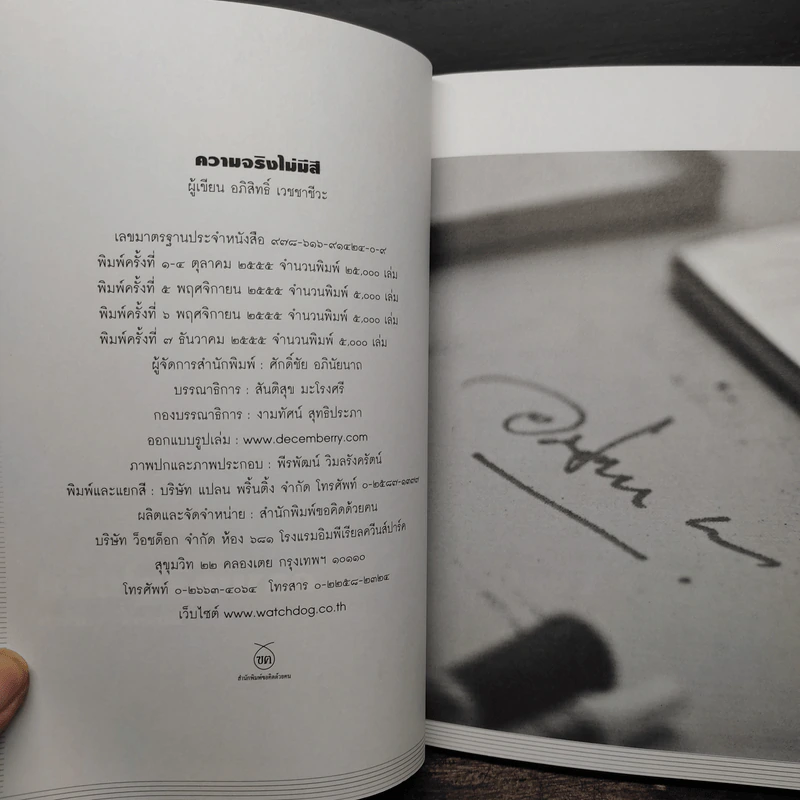 ความจริงไม่มีสี
ผู้เขียน อภิสิทธิ์ เวชชาชีวะ
เลขมาตรฐานประจำหนังสือ ๙๗๘-๖๑๖-๙๑๔๒๔-๐-๙
พิมพ์ครั้งที่ ๑-๔ ตุลาคม ๒๕๕๕ จำนวนพิมพ์ ๒๕,๐๐๐ เล่ม
พิมพ์ครั้งที่ ๕ พฤศจิกายน ๒๕๕๕ จำนวนพิมพ์ ๕,๐๐๐ เล่ม
พิมพ์ครั้งที่ ๖ พฤศจิกายน ๒๕๕๕ จำนวนพิมพ์ ๕,๐๐๐ เล่ม
พิมพ์ครั้งที่ ๗ ธันวาคม ๒๕๕๕ จำนวนพิมพ์ ๕,๐๐๐ เล่ม
ผู้จัดการสำนักพิมพ์ : ศักดิ์ชัย อภินัยนาถ
บรรณาธิการ : สันติสุข มะโรงศรี
กองบรรณาธิการ : งามทัศน์ สุทธิประภา
ออกแบบรูปเล่ม : www.decemberry.com
ภาพปกและภาพประกอบ : พีรพัฒน์ วิมลรังครัตน์
พิมพ์และแยกสี : บริษัท แปลน พริ้นติ้ง จำกัด โทรศัพท์
ผลิตและจัดจำหน่าย : สำนักพิมพ์ขอคิดด้วยคน
บริษัท ว็อชด็อก จำกัด ห้อง ๖๘๑ โรงแรมอิมพีเรียลควีนส์ปาร์ค
สุขุมวิท ๒๒ คลองเตย กรุงเทพฯ ๑๐๑๑๐
โทรศัพท์ ๐-๒๖๖๓-๔๐๖๔ โทรสาร ๐-๒๒๕๘-๒๓๒๔
เว็บไซต์ www.watchdog.co.th
ขค
สำนักพิมพ์ขอคิดด้วยคน